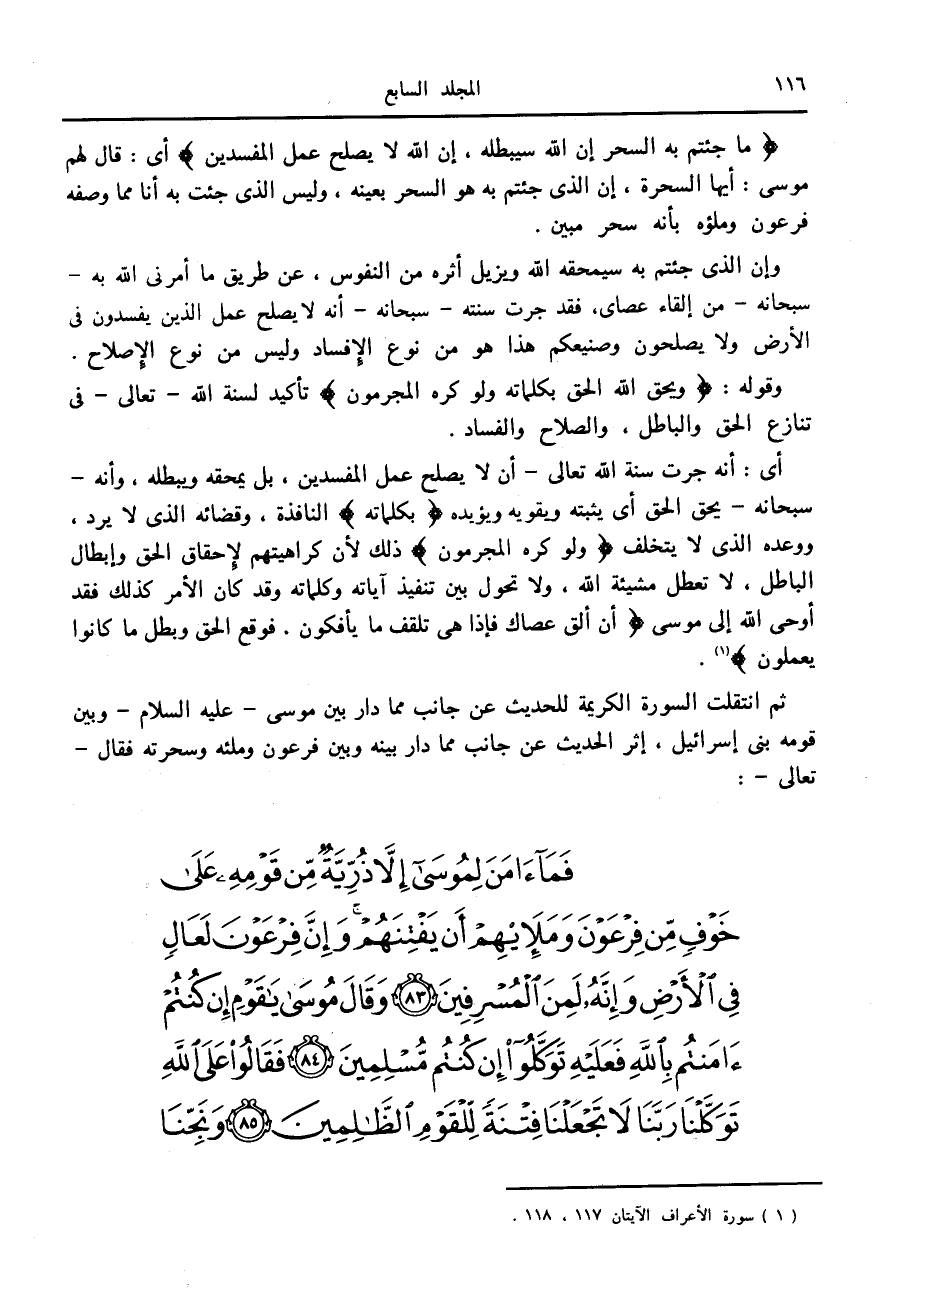 ١١٦
المجلد السابع
﴿ ما جئتم به السحر إن الله سيبطله ، إن الله لا يصلح عمل المفسدين ﴾ أى : قال لهم
موسى : أيها السحرة ، إن الذى جئتم به هو السحر بعينه ، وليس الذى جئت به أنا مما وصفه
فرعون وملؤه بأنه سحر مبين .
وإن الذى جئتم به سيمحقه الله ويزيل أثره من النفوس ، عن طريق ما أمرنى الله به –
سبحانه – من إلقاء عصاى، فقد جرت سنته – سبحانه – أنه لايصلح عمل الذين يفسدون فى
الأرض ولا يصلحون وصنيعكم هذا هو من نوع الإفساد وليس من نوع الإصلاح .
وقوله : ﴿ ويحق الله الحق بكلماته ولو كره المجرمون ﴾ تأكيد لسنة الله – تعالى – فى
تنازع الحق والباطل ، والصلاح والفساد .
أى : أنه جرت سنة الله تعالى – أن لا يصلح عمل المفسدين ، بل يمحقه ويبطله ، وأنه –
سبحانه – يحق الحق أى يثبته ويقويه ويؤيده ﴿ بكلماته ﴾ النافذة ، وقضائه الذى لا يرد ،
ووعده الذى لا يتخلف ﴿ ولو كره المجرمون ﴾ ذلك لأن كراهيتهم لإحقاق الحق وإبطال
الباطل ، لا تعطل مشيئة الله ، ولا تحول بين تنفيذ آياته وكلماته وقد كان الأمر كذلك فقد
أوحى الله إلى موسى ﴿ أن ألق عصاك فإذا هى تلقف ما يأفكون . فوقع الحق وبطل ما كانوا
يعملون ﴾(١) .
ثم انتقلت السورة الكريمة للحديث عن جانب مما دار بين موسى – عليه السلام – وبين
قومه بنى إسرائيل ، إثر الحديث عن جانب مما دار بينه وبين فرعون وملئه وسحرته فقال –
تعالى – :
فَمَآ ءَامَنَ لِمُوسَىٰٓ إِلَّا ذُرِّيَّةٌ مِّن قَوْمِهِۦ عَلَىٰ
خَوْفٍ مِّن فِرْعَوْنَ وَمَلَإِيْهِمْ أَن يَفْتِنَهُمْ ۚ وَإِنَّ فِرْعَوْنَ لَعَالٍ
فِى ٱلْأَرْضِ وَإِنَّهُۥ لَمِنَ ٱلْمُسْرِفِينَ ٨٣ وَقَالَ مُوسَىٰ يَٰقَوْمِ إِن كُنتُمْ
ءَامَنتُم بِٱللَّهِ فَعَلَيْهِ تَوَكَّلُوٓا۟ إِن كُنتُم مُّسْلِمِينَ ٨٤ فَقَالُوا۟ عَلَى ٱللَّهِ
تَوَكَّلْنَا رَبَّنَا لَا تَجْعَلْنَا فِتْنَةً لِّلْقَوْمِ ٱلظَّٰلِمِينَ ٨٥ وَنَجِّنَا
( ١ ) سورة الأعراف الآيتان ١١٧ ، ١١٨ .